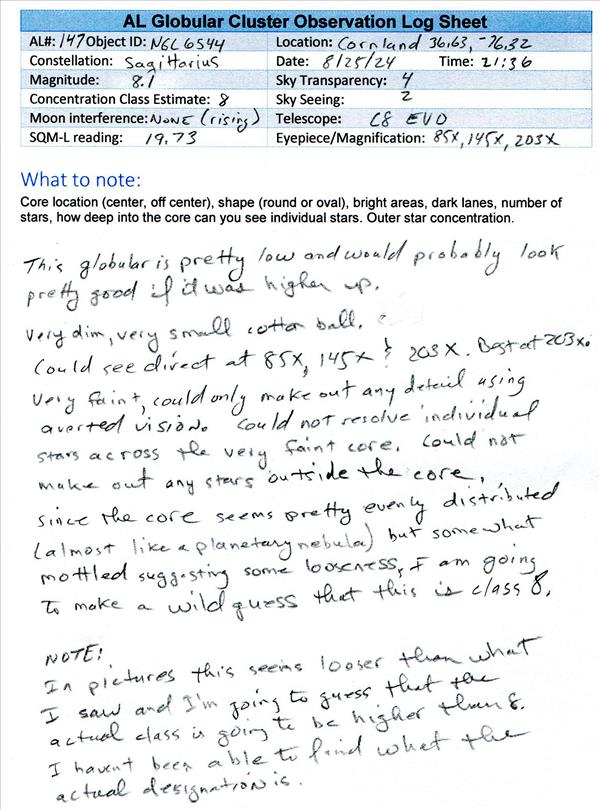 AL Globular Cluster Observation Log Sheet
AL#: 147 Object ID: NGC 6544 Location: Cornland 36.63, -76.32
Constellation: Sagittarius Date: 8/25/24 Time: 21:36
Magnitude: 8.1 Sky Transparency: 4
Concentration Class Estimate: 8 Sky Seeing: 2
Moon interference: NONE (rising) Telescope: C8 EVO
SQM-L reading: 19.73 Eyepiece/Magnification: 85X, 145X, 203X
What to note:
Core location (center, off center), shape (round or oval), bright areas, dark lanes, number of
stars, how deep into the core can you see individual stars. Outer star concentration.
This globular is pretty low and would probably look
pretty good if it was higher up.
Very dim, very small cotton ball.
Could see direct at 85X, 145X & 203X. Best at 203X.
Very faint, could only make out any detail using
averted vision. Could not resolve individual
stars across the very faint core. Could not
make out any stars outside the core.
Since the core seems pretty evenly distributed
(almost like a planetary nebula) but somewhat
mottled suggesting some looseness, I am going
to make a wild guess that this is class 8.
NOTE:
In pictures this seems looser than what
I saw and I'm going to guess that the
actual class is going to be higher than 8.
I haven't been able to find what the
actual designation is.